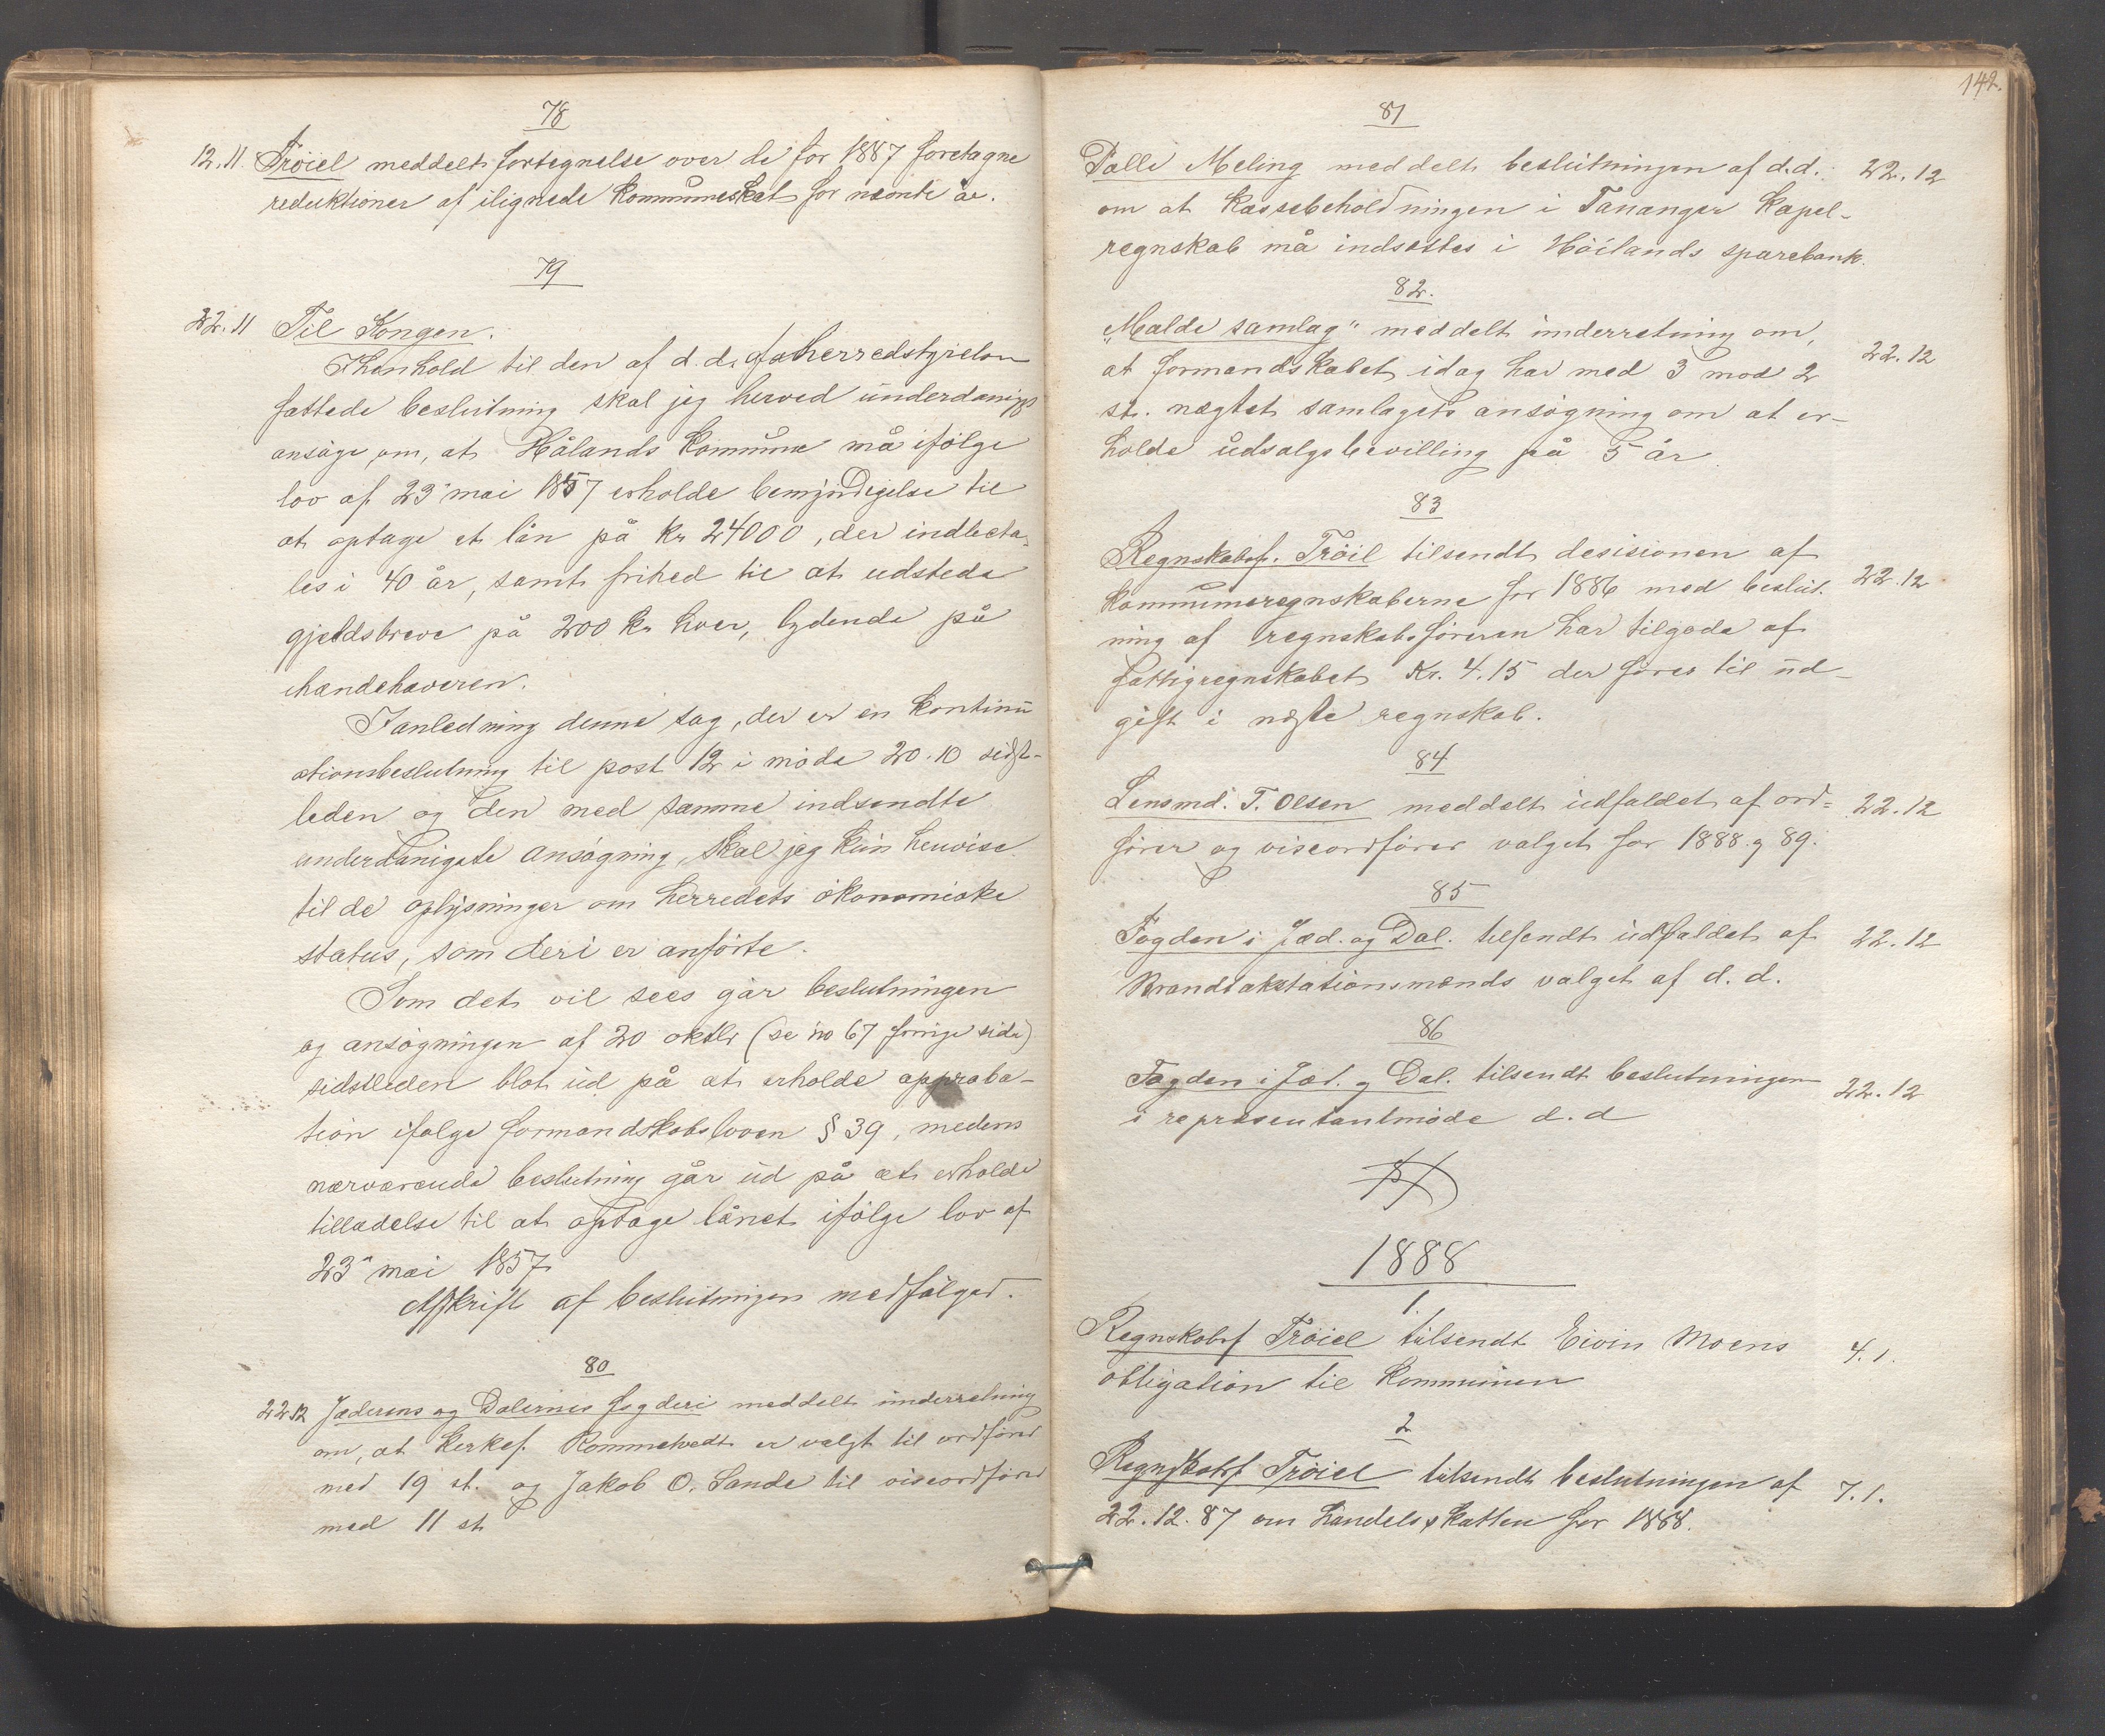 78
12.11. Tröiel meddelt fortegnelse over de for 1887 foretagne
reduktioner af ilignede kommuneskat for nævnte år.
79
22.11 Til Kongen.
Ihenhold til den af d.d. af herredstyrelsen
fattede beslutning skal jeg herved underdanigst
ansöge om, at Hålands kommune må ifölge
lov af 23de mai 1857 erholde bemyndigelse til
at optage et lån på kr 24000, der indbeta-
les i 40 år, samt frihed til at udstede
gjeldsbreve på 200 kr hver, lydende på
ihændehaveren.
I anledning denne sag, der er en kontinu
ationsbeslutning til post 12 i möde 20.10 sidst-
leden og den med samme indsendte
underdanigste ansögning, skal jeg kun henvise
til de oplysninger om herredets ökonomiske
status, som deri er anförte.
Som det vil sees går beslutningen
og ansögningen af 20 oktbr (se no 67 forrige side)
sidstleden blot ud på at erholde approba-
tion ifölge formandskabsloven § 39, medens
nærværende beslutning går ud på at erholde
tilladelse til at optage lånet ifölge lov af
23de mai 1857.
Afskrift af beslutningen medfölger.
80
22.12 Jæderens og Dalernes fogderi meddelt underretning
om, at kirkes. Rommetvedt er valgt til ordförer
med 19 st. og Jakob O. Sande til viseordförer
med 11 st.
142.
81
Palle Meling meddelt beslutningen af d.d. 22.12
om at kassebeholdningen i Tananger kapel-
regnskab må indsættes i Höilands sparebank.
82.
„Malde samlag" meddelt underretning om,
at formandskabet idag har med 3 mod 2 22.12
st. nægtet samlagets ansögning om at er-
holde udsalgsbevilling på 5 år
83
Regnskabsf. Tröil tilsendt desisionen af
kommuneregnskaberne for 1886 med beslut- 22.12
ning af regnskabsföreren har tilgode af
fattigregnskabet Kr. 4.15 der föres til ud-
gift i næste regnskab.
84
Lensmd. T. Olsen meddelt udfaldet af ord= 22.12
förer og viseordförer valget for 1888 og 89.
85
Fogden i Jæd. og Dal. tilsendt udfaldet af 22.12
Brandtakstationsmænds valget af d. d.
86
Fogden i Jæd. og Dal. tilsendt beslutningen 22.12
i representantmöde d.d
1888
1.
Regnskabsf Tröiel tilsendt Eivin Moens 4.1.
obligation til kommunen
2
Regnskabsf Tröiel tilsendt beslutningen af 7.1.
22.12.87 om handelsskatten for 1888.